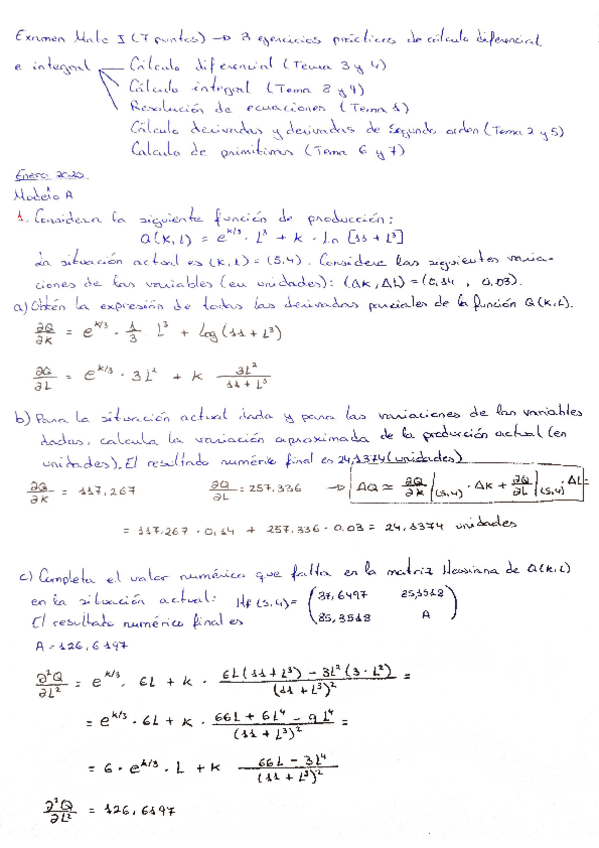 Examen Mate I (7 puntos) → 3 ejercicios prácticos de cálculo diferencial
e integral Cálculo diferencial (Tema 3 y 4)
Cálculo integral (Tema 8 y 9)
Resolución de ecuaciones (Tema 1)
Cálculo derivadas y derivadas de segundo orden (Tema 2 y 5)
Calculo de primitivas (Tema 6 y 7)
Enero 2020.
Modelo A
1. Considera la siguiente función de producción:
Q(K,L) = e^{K/3} · L³ + K · Ln [11 + L³]
La situación actual es (K,L) = (5,4). Considera las siguientes varia-
ciones de las variables (en unidades): (ΔK, ΔL) = (0,14 , 0,03).
a) Obtén la expresión de todas las derivadas parciales de la función Q(K,L).
∂Q/∂K = e^{K/3} · 1/3 L³ + Log (11 + L³)
∂Q/∂L = e^{K/3} · 3L² + K 3L²/(11 + L³)
b) Para la situación actual dada y para las variaciones de las variables
dadas, calcula la variación aproximada de la producción actual (en
unidades). El resultado numérico final es 24,1374 (unidades)
∂Q/∂K = 117,267 ∂Q/∂L = 257,336 → ΔQ ≃ ∂Q/∂K|(5,4) · ΔK + ∂Q/∂L|(5,4) · ΔL =
= 117,267 · 0,14 + 257,336 · 0,03 = 24,1374 unidades
c) Completa el valor numérico que falta en la matriz Hessiana de Q(K,L)
en la situación actual: Hf (5,4) = (37,6497 85,3518
El resultado numérico final es 85,3518 A)
A = 126,6197
∂²Q/∂L² = e^{K/3} · 6L + K · (6L(11 + L³) − 3L²(3 · L²))/(11 + L³)² =
= e^{K/3} · 6L + K · (66L + 6L⁴ − 9L⁴)/(11 + L³)² =
= 6 · e^{K/3} · L + K (66L − 3L⁴)/(11 + L³)²
∂²Q/∂L² = 126,6197